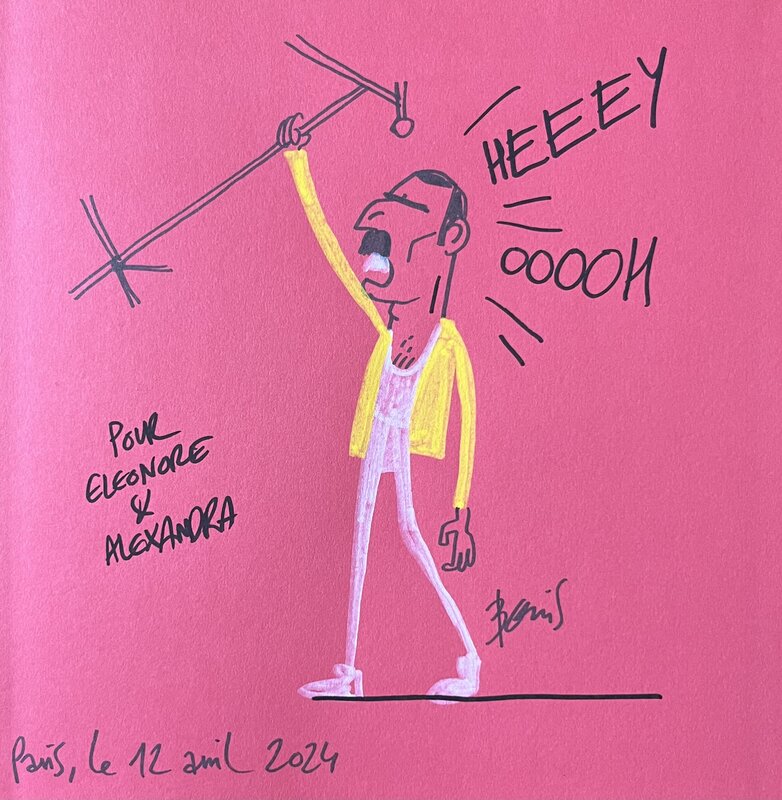 HEEEY
OOOOH
POUR
ELEONORE
&
ALEXANDRA
Paris, le 12 avril 2024